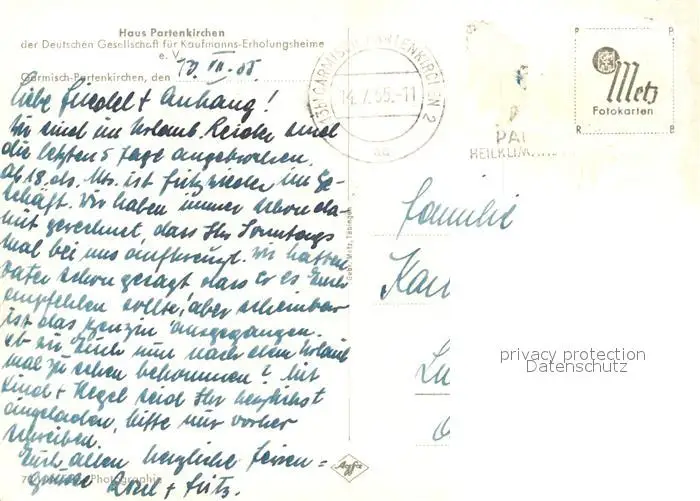 Haus Partenkirchen
der Deutschen Gesellschaft für Kaufmanns-Erholungsheime
e. V.
Garmisch-Partenkirchen, den 13. VII. 55
Liebe Friedel + Anhang!
Wir sind im Urlaub. Leider sind
die letzten 5 Tage angebrochen.
Ab 18. ds. Mts. ist Fritz wieder im Ge-
schäft. Wir haben immer schon da-
mit gerechnet, dass Ihr Sonntags
mal bei uns aufkreuzt. Wir hatten
Vater schon gesagt dass er es Euch
empfehlen sollte, aber scheinbar
ist das Benzin ausgegangen.
Ob wir Euch nun nach dem Urlaub
mal zu sehen bekommen? Mit
Kind + Kegel seid Ihr herzlichst
eingeladen, bitte nur vorher
schreiben.
Euch allen herzliche Ferien=
grüsse + Fritz.
Photographie
GARMISCH-PARTENKIRCHEN 2
14.7.55.-11
PA
HEILKLIMA
Metz
Fotokarten
P R
R B
Gebr. Metz, Tübingen
Agfa
Familie
Kau
Lu
privacy protection
Datenschutz